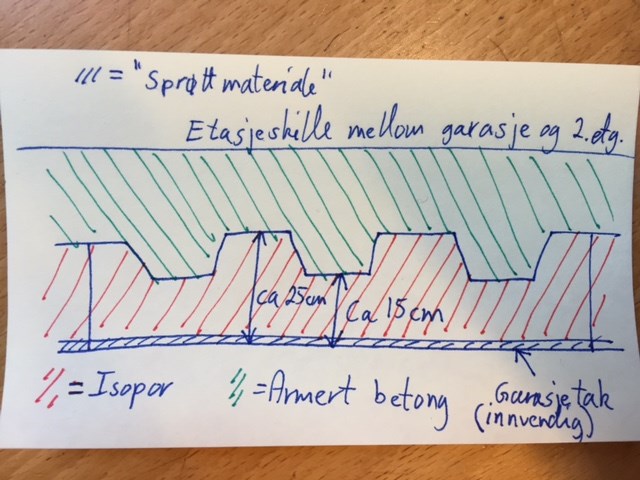 /// = "Sprøtt materiale"
Etasjeskille mellom garasje og 2. etg.
ca 25cm
Ca 15cm
= Isopor
= Armert betong
Garasjetak
(innvendig)